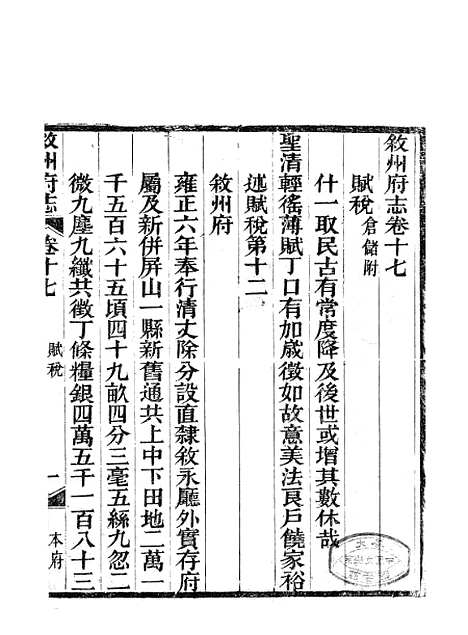 敘州府志卷十七
賦稅倉儲附
什一取民古有常度降及後世或增其數休哉
聖清輕徭薄賦丁口有加歲徵如故意美法良戶饒家裕
述賦稅第十二
敘州府
雍正六年奉行清丈除分設直隸敘永廳外實存府
屬及新併屏山一縣新舊通共上中下田地二萬一
千五百六十五頃四十九畝四分三毫五絲九忽二
微九塵九纖共徵丁條糧銀四萬五千一百八十三
敘州府志
卷十七
賦稅
一
本府